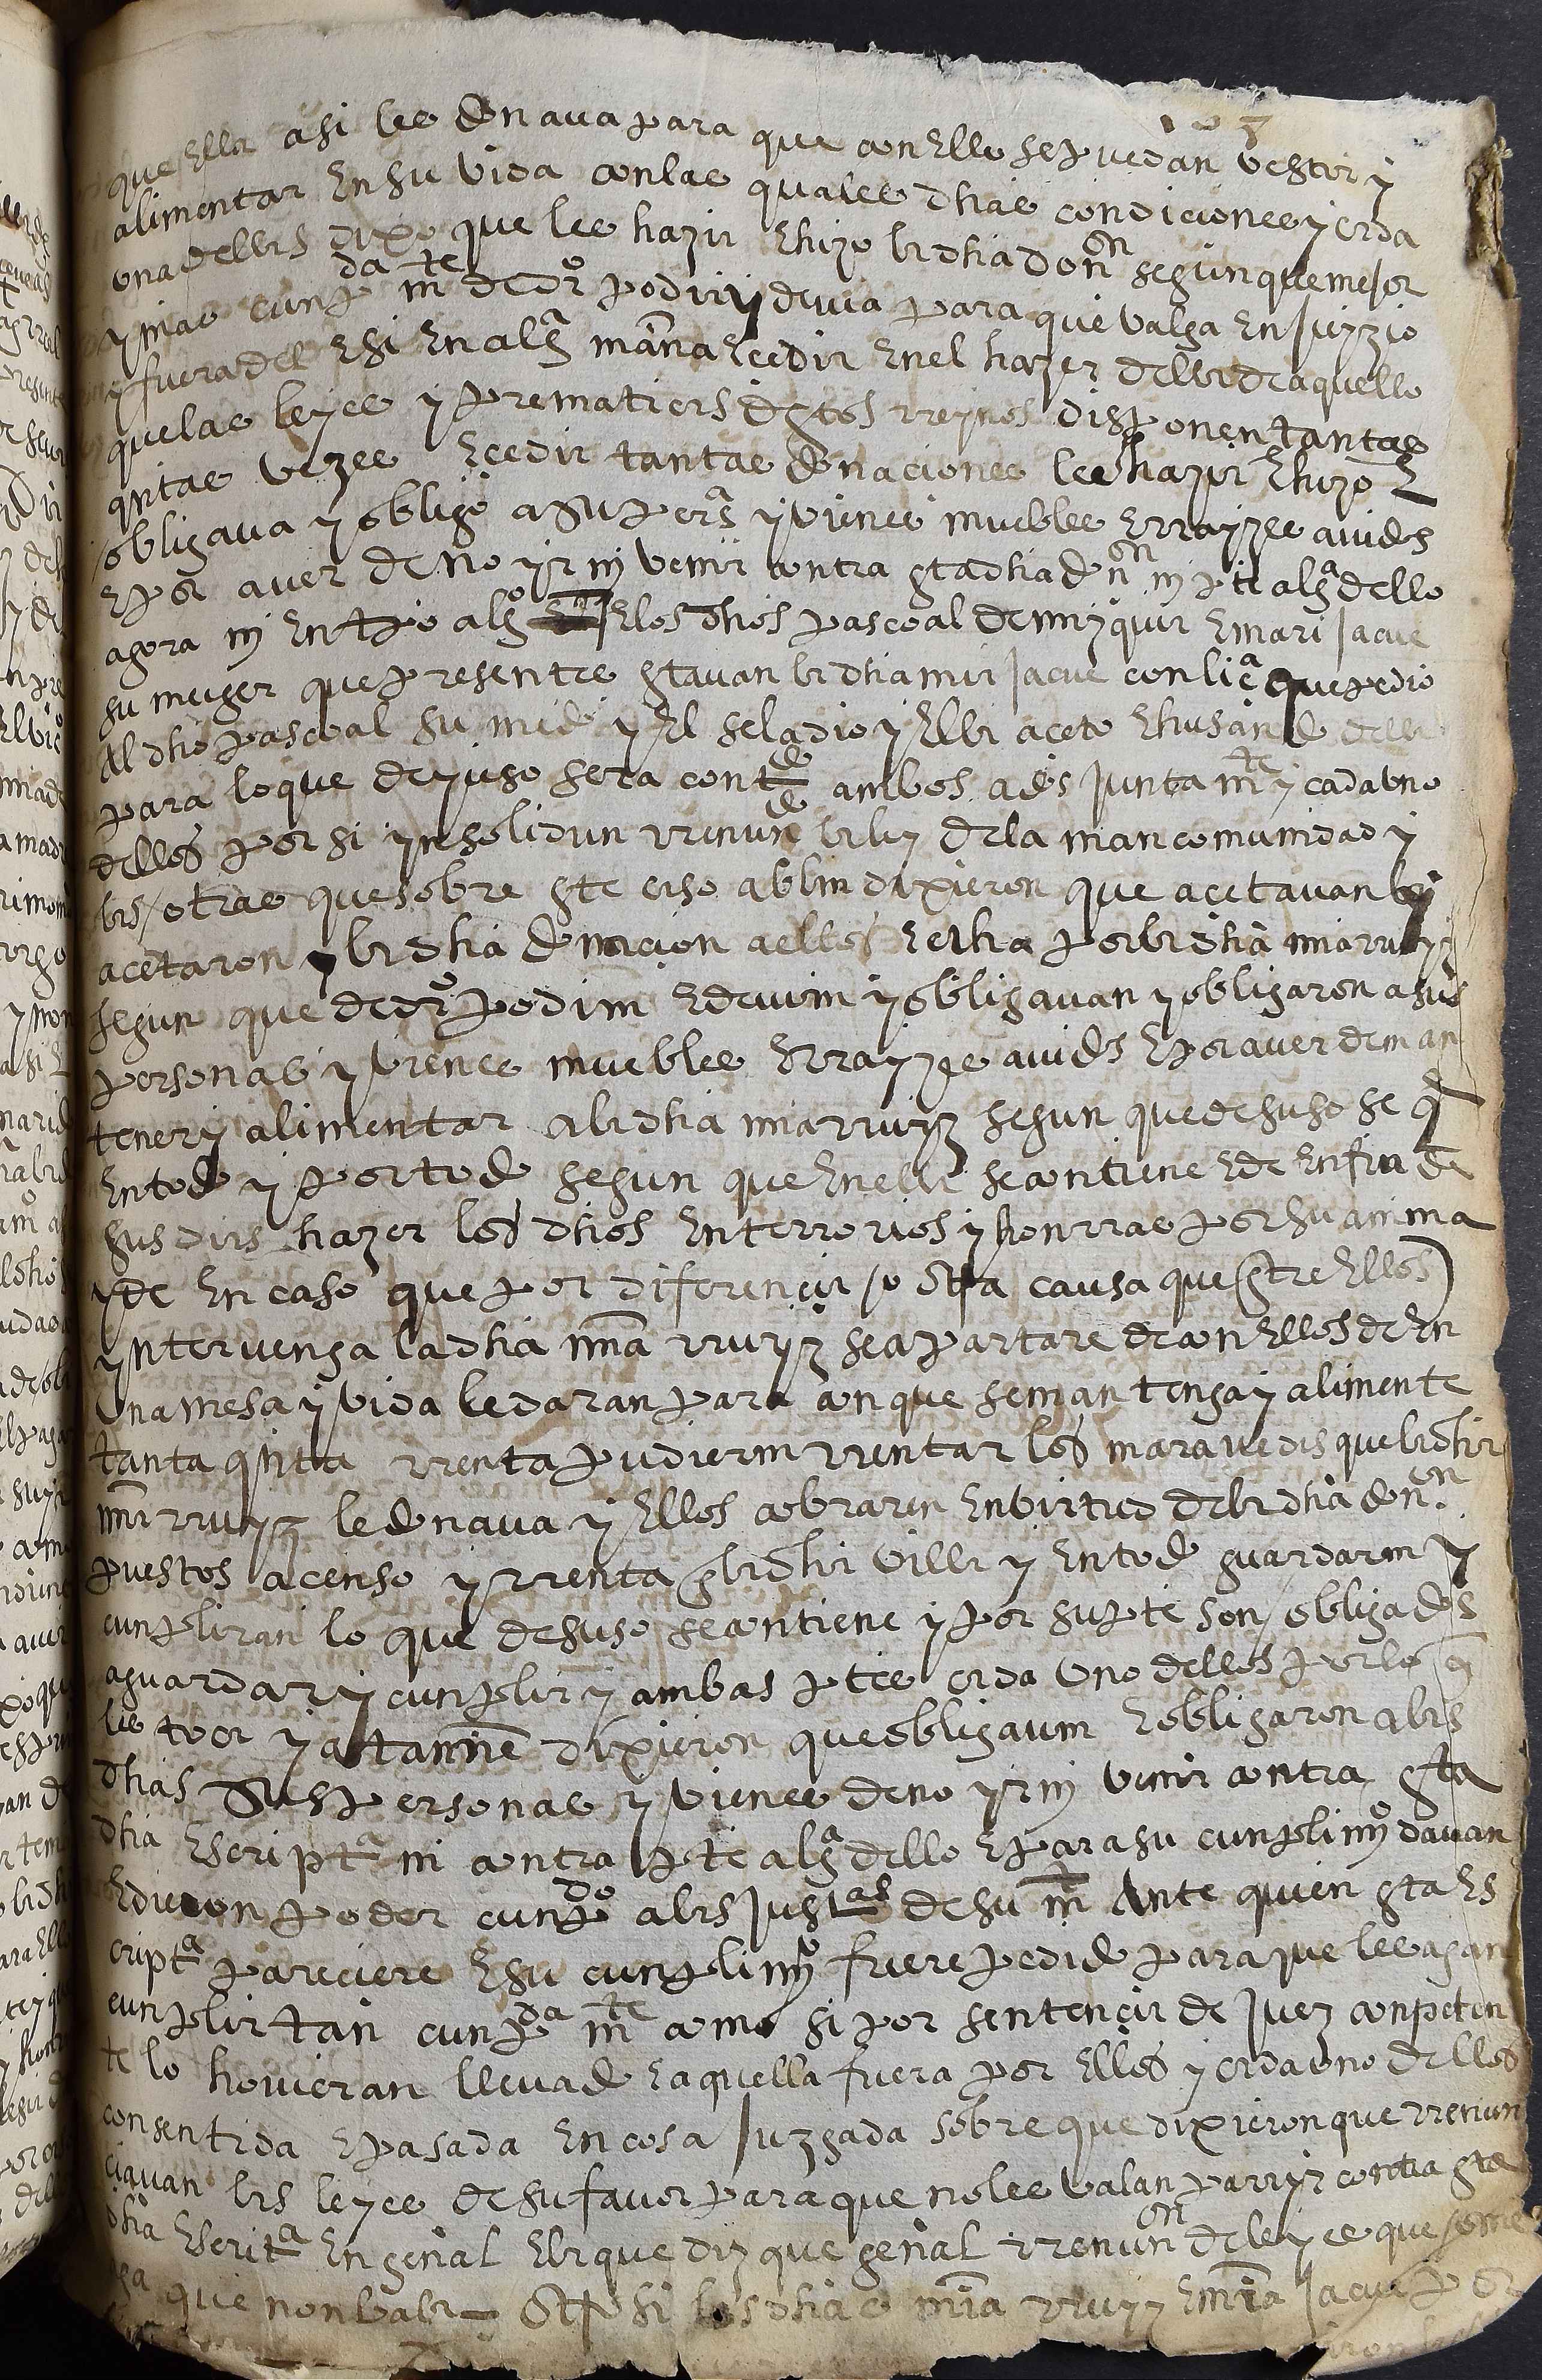 que ella asi les donava para que con ello se puedan vestir y
alimentar en su vida con las quales dhas condiciones y cada
una dellas dixo que les hazia e hizo la dha donon segun que mejor
y mas cunpda mte de dro podia y devia para que valga en juyzio
y fuera del e si en alga mana ecedia en el hazer della de aquello
que las leyes y prematicas destos rreynos disponen tantas
qntas vezes ecedia tantas donaciones les hazia e hizo e
obligava y obligo a su persa y vienes muebles e rrayzes avidos
e por aver de no yr ni venir contra esta dha donon ni pte alga dello
agora ni en tpo algo e los dhos pascoal de mizquia e mari jacue
su muger que presentes estavan la dha mia jacue con lica que pedio
al dho pascoal su mido y el se la dio y ella aceto e husando della
para lo que de yuso sera contdo ambos a dos junta mte y cada uno
dellos por si ynsolidun rrenundo la ley de la mancomunidad y
las otras que sobre este caso ablan dixieron que acetavan y
acetaron la dha donacion a ellos echa por la dha mia rruyz
segun que de dro podian e devian y obligavan y obligaron a sus
personas y vienes muebles e rrayzes avidos e por aver de man
tener y alimentar a la dha mia rruyz segun que de suso se qe
en todo y por todo segun que en ella se contiene e de en fin de
sus dias hazer los dhos enterrorios y honrras por su anima
y de en caso que por diferencia o otra causa que entre ellos
yntervenga la dha mia rruyz se apartare de con ellos de en
una mesa y vida le daran para con que se mantenga y alimente
tanta qnta rrenta pudieran rrentar los maravedis que la dha
mia rruyz le donava y ellos cobraren en virtud de la dha donon
puestos a censo y rrenta en la dha villa y en todo guardaran y
cunpliran lo que de suso se contiene y por su pte son obligados
a guardar y cunplir y ambas ptes cada uno dellos por lo qe
les toca y atanne dixieron que obligavan e obligaron a las
dhas sus personas y vienes de no yr ni venir contra esta
dha escripta ni contra pte alga dello e para su cunplimyo davan
e dieron poder cunpdo a las justas de su mt ante quien esta es
cripta pareciere e su cunplimyo fuere pedido para que les agan
cunplir tan cunpda mte como si por sentencia de juez conpeten
te lo hovieran llevado e aquella fuera por ellos y cada uno dellos
consentida e pasada en cosa juzgada sobre que dixieron que rrenun
ciavan las leyes de su favor para que no les valan para yr contra esta
dha escrita en genal e la que diz que genal rrenunon de leyes que ome
aga que non vala Otrosi las dhas mia rruyz e mia jacue por